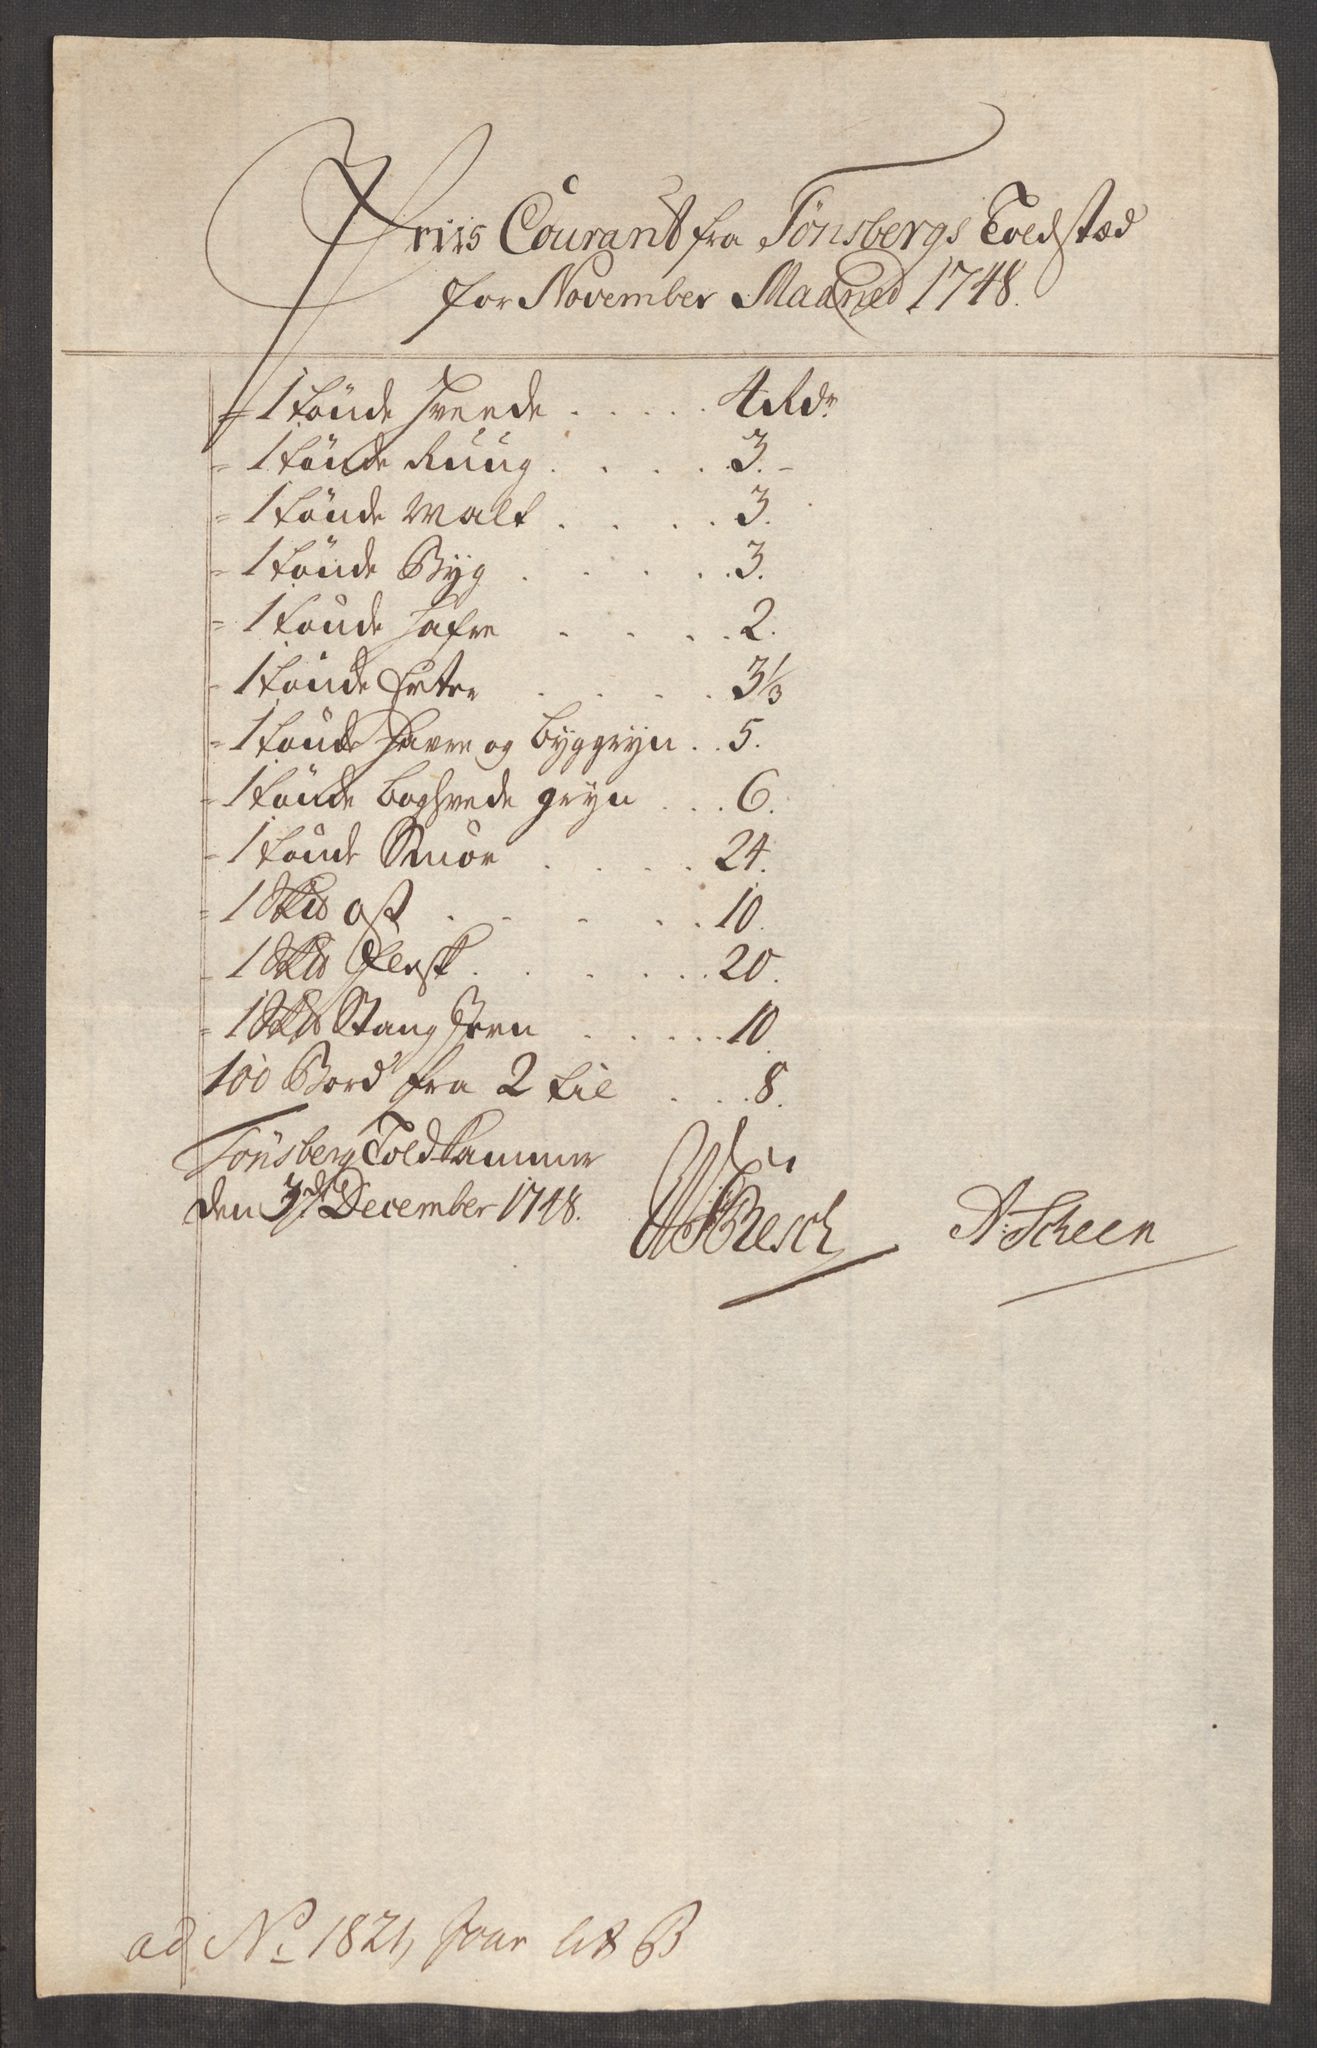 Priis Courant fra Tönsbergs Toldstæd
for November Maaned 1748.
= 1 tönde Hvede . . . . . 4 Rdr
= 1 tönde Ruug . . . . 3. -
= 1 tönde Malt . . . . 3.
= 1 tönde Byg . . . . . 3.
= 1 tönde Hafre . . . . 2.
- 1 tönde Erter . . . . 3 1/3
= 1 tönde Havre og byggryn . . 5.
- 1 tönde boghvede gryn . . . 6.
- 1 tönde Smör . . . . 24.
= 1 Skd ost . . . . . 10.
- 1 Skd Flesk . . . . . 20.
= 1 Skd Stang Jern . . . . . 10.
100 Bord fra 2 til . . . 8.
Tönsberg Toldkammer
den 3de December 1748.
Resch A: Scheen
ad No 1821, Jour lit B